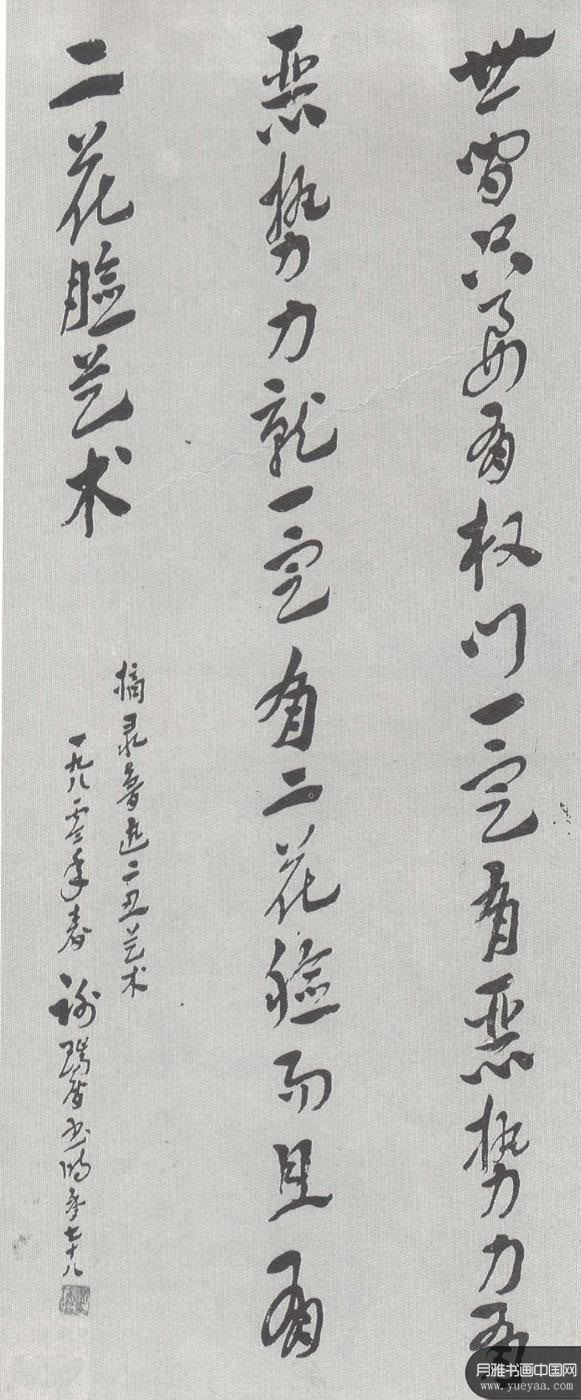 世间只要有权门一定有恶势力有
恶势力就一定有二花脸而且有
二花脸艺术
摘录鲁迅二丑艺术
一九八零年春 谢瑞阶书 时年七十八
月雅书画中国网
www.yueyaa.com